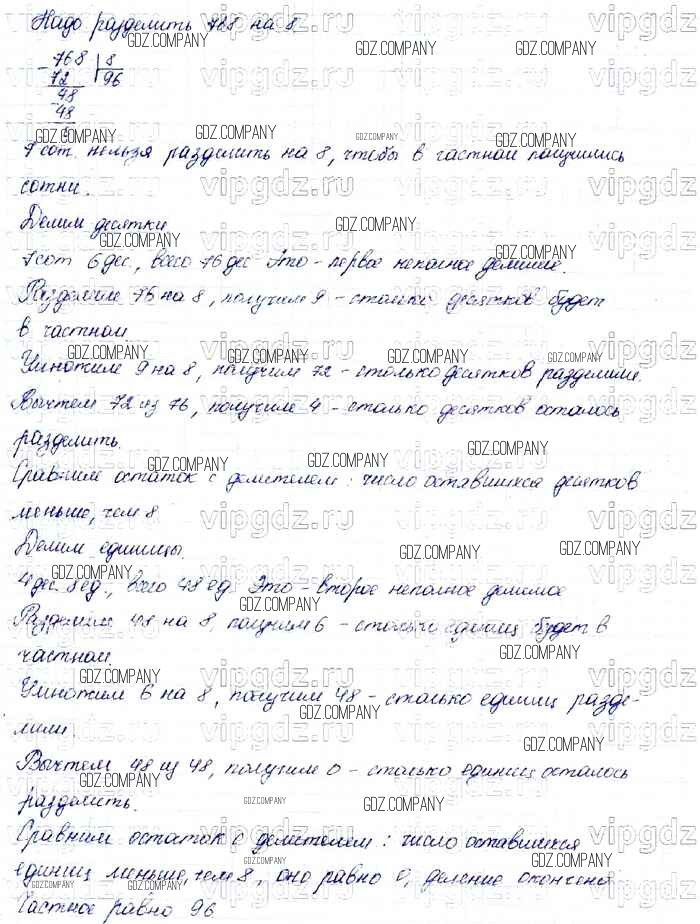 Надо разделить 768 на 8.
768 8
72 96
48
48
0
7 сот. нельзя разделить на 8, чтобы в частном получились
сотни.
Делим десятки.
7 сот 6 дес., всего 76 дес Это - первое неполное делимое.
Разделим 76 на 8, получим 9 - столько десятков будет
в частном.
Умножим 9 на 8, получим 72 - столько десятков разделили.
Вычтем 72 из 76, получим 4 - столько десятков осталось
разделить.
Сравним остаток с делителем: число оставшихся десятков
меньше, чем 8
Делим единицы.
4 дес. 8 ед., всего 48 ед. Это - второе неполное делимое
Разделим 48 на 8, получим 6 - столько единиц будет в
частном.
Умножим 6 на 8, получим 48 - столько единиц разде-
лили.
Вычтем 48 из 48, получим 0 - столько единиц осталось
разделить.
Сравним остаток с делителем: число оставшихся
единиц меньше, чем 8, оно равно 0, деление окончено.
Частное равно 96
vipgdz.ru
GDZ.COMPANY